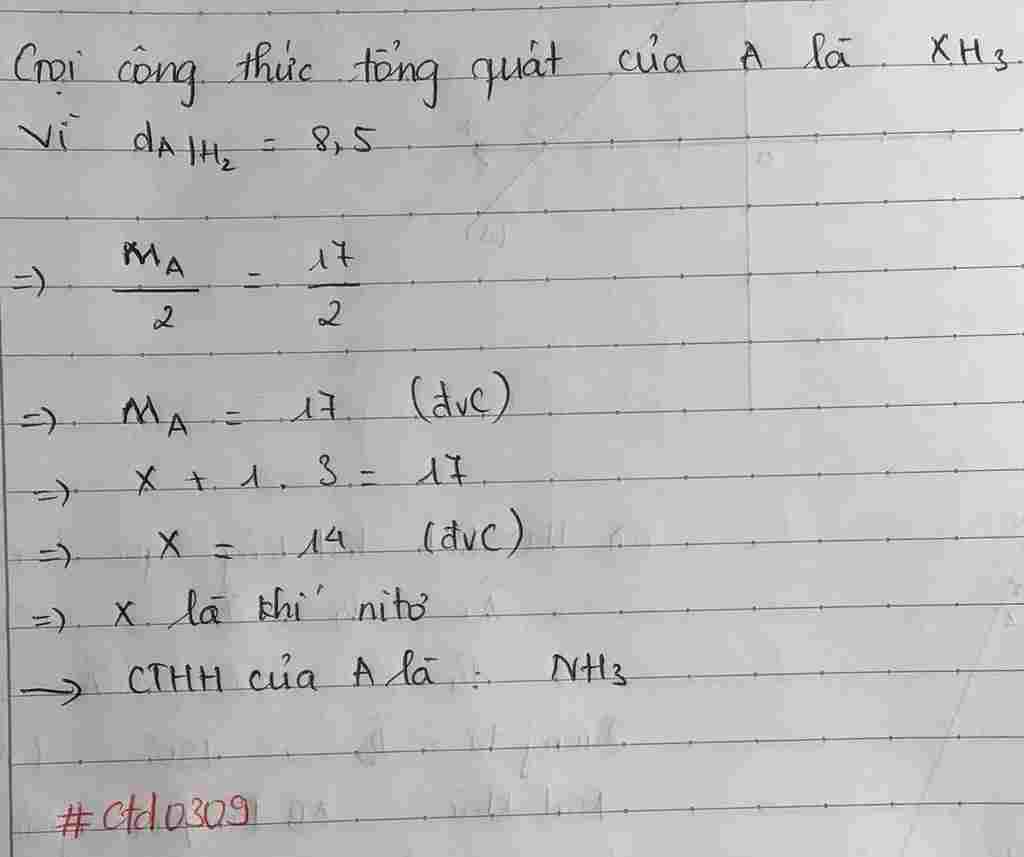 Gọi công thức tổng quát của A là XH3
Vì dA/H2 = 8,5
=> MA/2 = 17/2
=> MA = 17 (đvC)
=> X + 1 . 3 = 17
=> X = 14 (đvC)
=> X là khí nitơ
→ CTHH của A là : NH3
#ctd0309